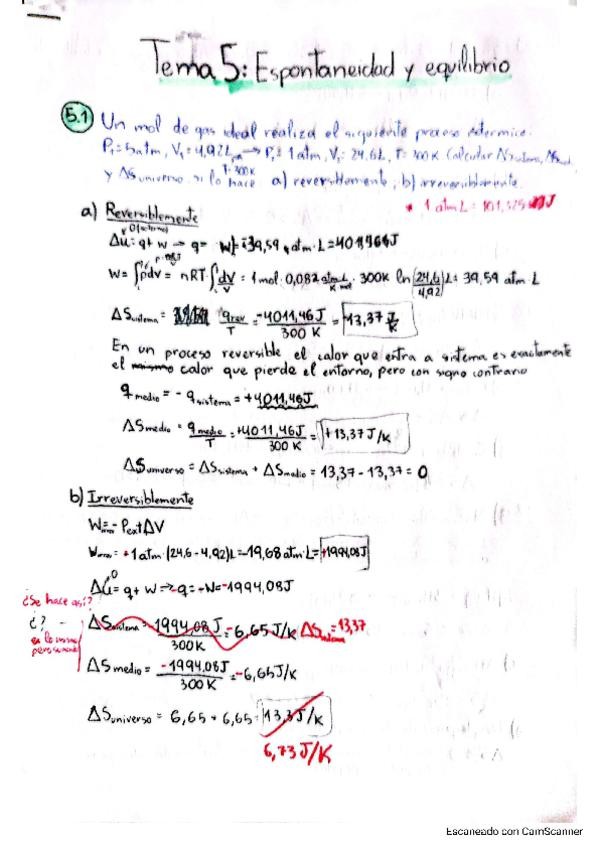 Tema 5: Espontaneidad y equilibrio
5.1 Un mol de gas ideal realiza el siguiente proceso
P₁=5atm, V₁=4,92L → 1 atm, 24,6L, T=300K. Calcular ΔSsistema,
T=300K
y ΔSuniverso si lo hace a) reversiblemente, b) irreversiblemente.
* 1 atm·L = 101,325 J
a) Reversiblemente
ΔU = q + w → q =
ΔSsistema = qrev/T = -4011,46J/300 K = 13,37 J/K
En un proceso reversible el calor que entra a sistema es exactamente
el mismo calor que pierde el entorno, pero con signo contrario
qmedio = - qsistema = +4011,46J
ΔSmedio = qmedio/T = +4011,46J/300K = +13,37 J/K
ΔSuniverso = ΔSsistema + ΔSmedio = 13,37 - 13,37 = 0
b) Irreversiblemente
W = - Pext ΔV
1atm·(24,6-4,92)L = 19,68 atm·L = +1994,08J
ΔU = q + w → -q = -W = -1994,08J
¿Se hace así?
¿? -
ΔSsistema = 1994,08J/300K = -6,65 J/K ΔSsistema = 13,37
ΔSmedio = -1994,08J/300K = -6,65J/K
ΔSuniverso = 6,65 + 6,65 = 13,3J/K
6,73 J/K
Escaneado con CamScanner